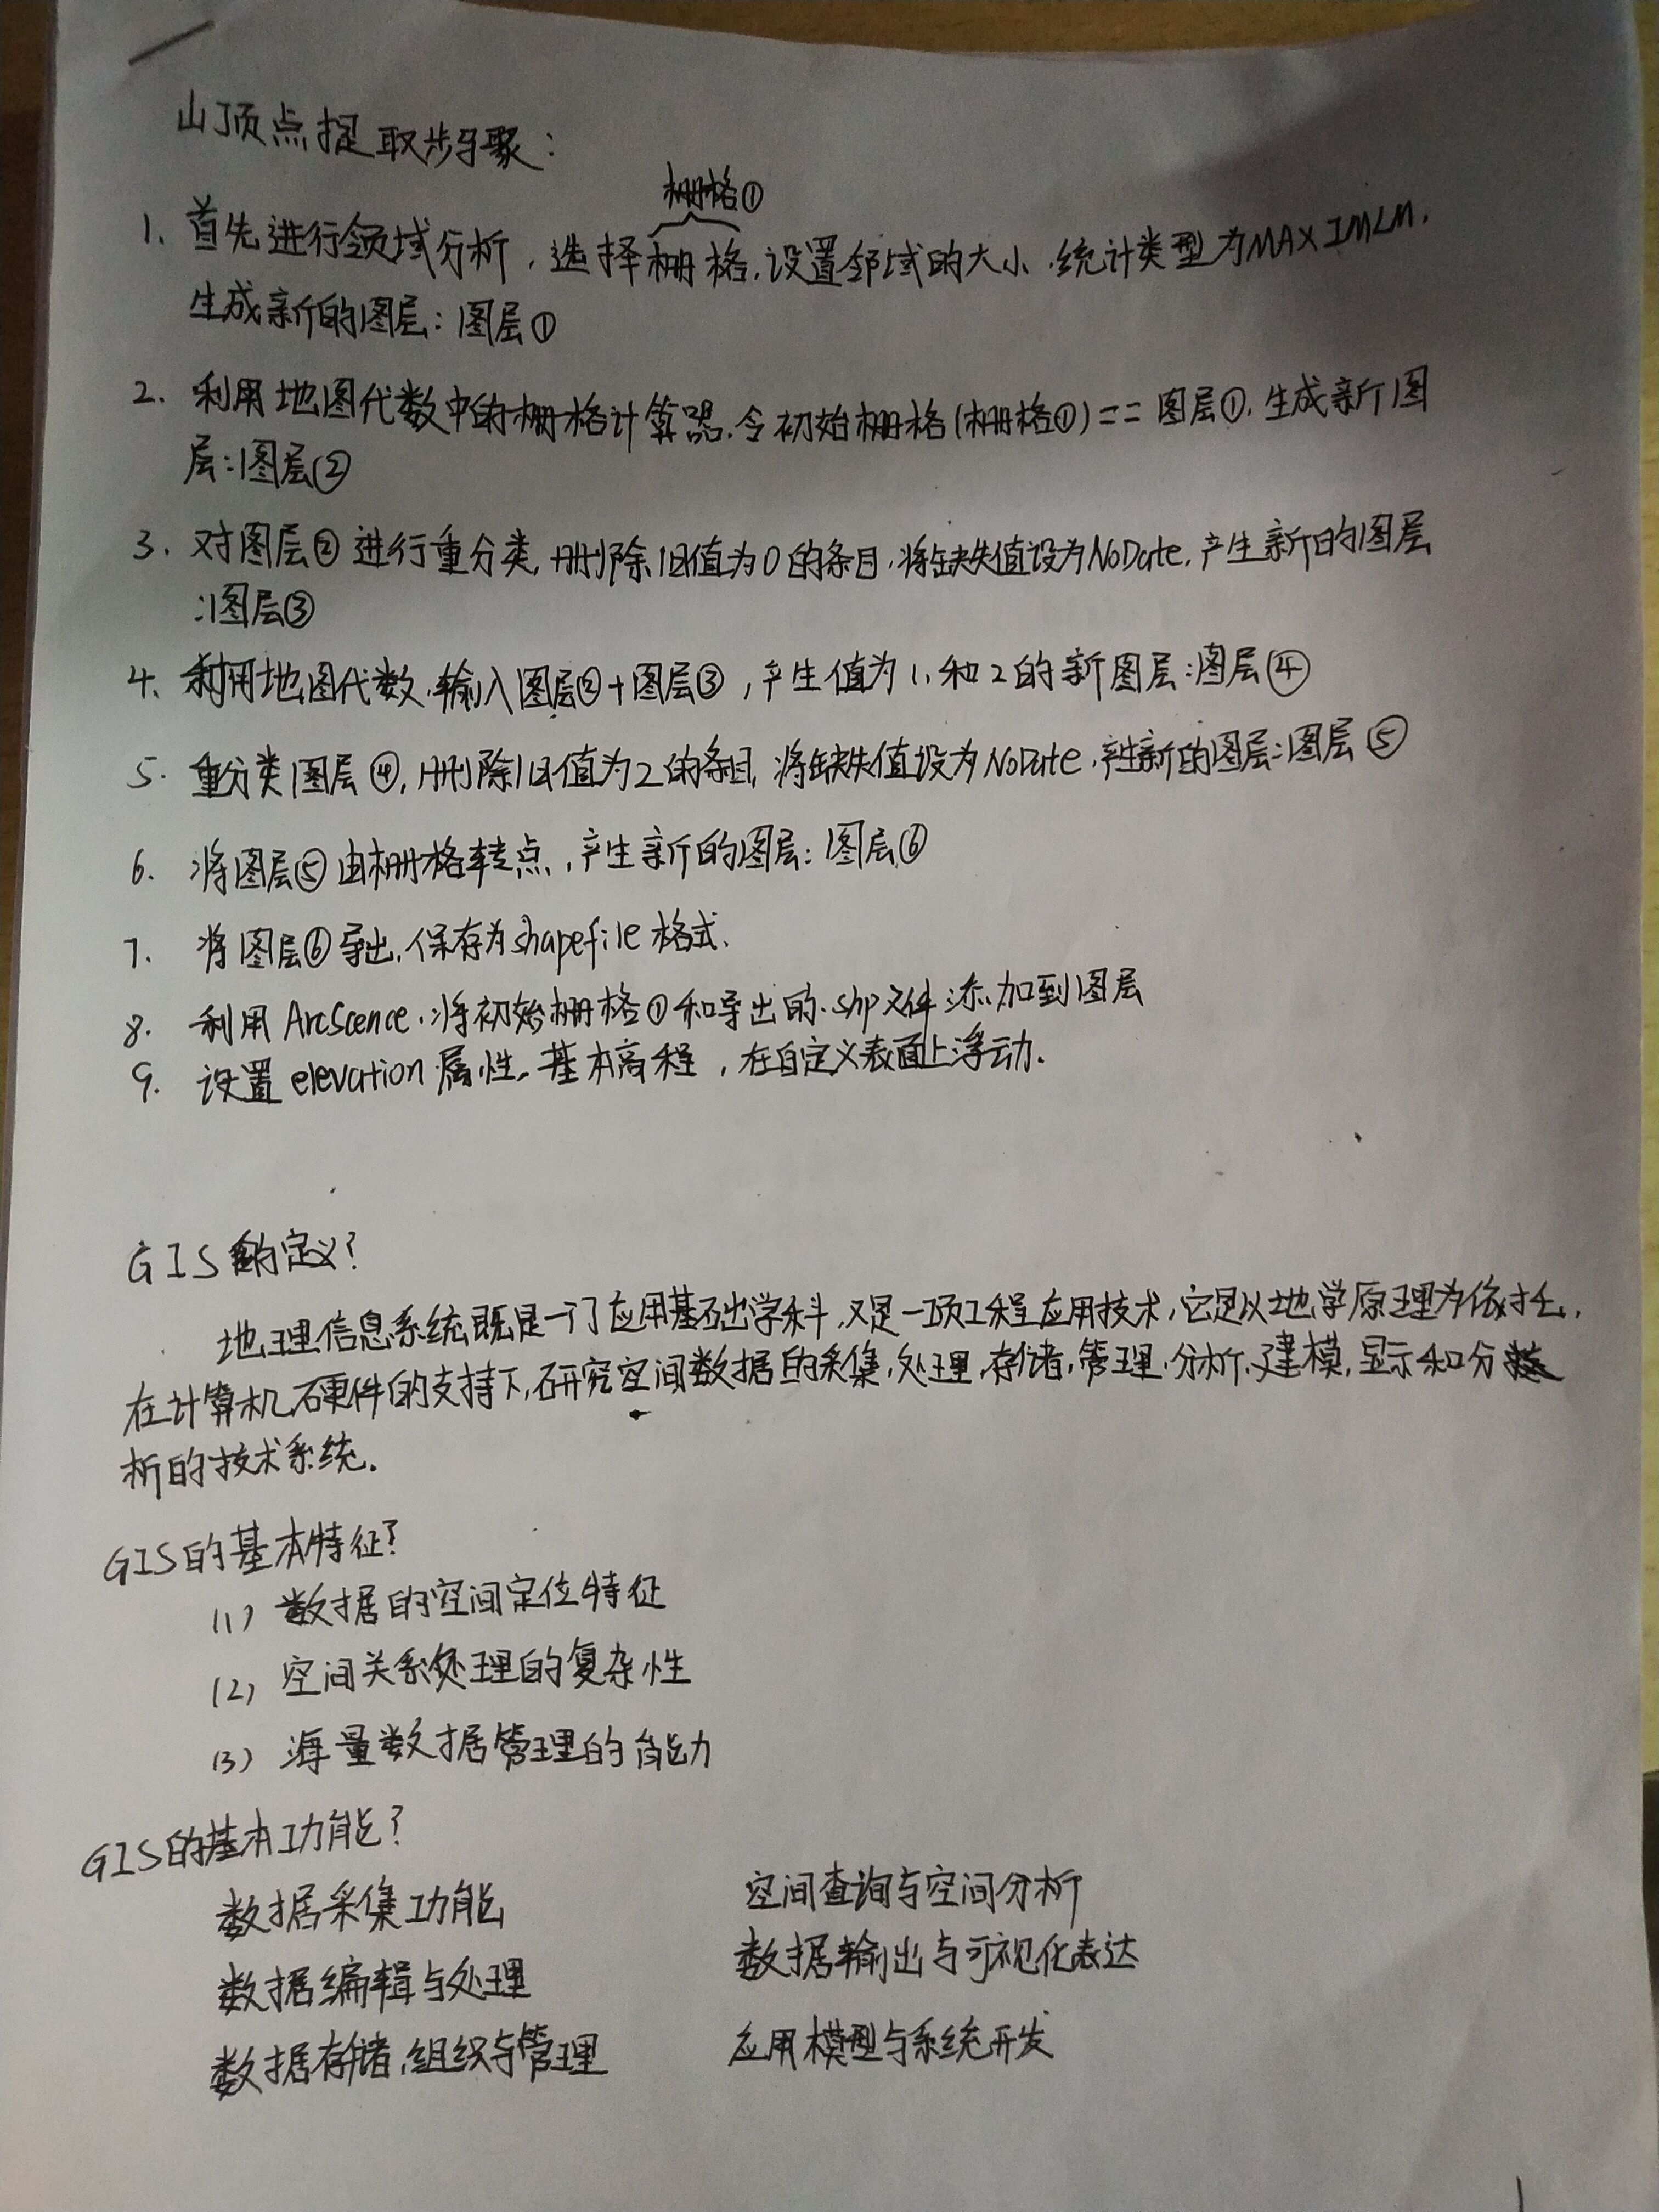 山顶点提取步骤：
栅格①
1. 首先进行领域分析，选择栅格，设置邻域的大小，统计类型为MAXIMLM，
生成新的图层：图层①
2. 利用地图代数中的栅格计算器，令初始栅格(栅格①)==图层①，生成新图
层：图层②
3. 对图层②进行重分类，删除旧值为0的条目，将缺失值设为NoDate，产生新的图层
：图层③
4. 利用地图代数，输入图层②+图层③，产生值为1，和2的新图层：图层④
5. 重分类图层④，删除旧值为2的条目，将缺失值设为NoDate，产生新的图层：图层⑤
6. 将图层⑤由栅格转点，产生新的图层：图层⑥
7. 将图层⑥导出，保存为shapefile格式.
8. 利用ArcScence，将初始栅格①和导出的.shp文件添加到图层
9. 设置elevation属性，基本高程，在自定义表面上浮动.
GIS的定义？
地理信息系统既是一门应用基础学科，又是一项工程应用技术，它是以地学原理为依托，
在计算机硬件的支持下，研究空间数据的采集，处理，存储，管理，分析，建模，显示和分
析的技术系统.
GIS的基本特征？
(1) 数据的空间定位特征
(2) 空间关系处理的复杂性
(3) 海量数据管理的能力
GIS的基本功能？
数据采集功能 空间查询与空间分析
数据编辑与处理 数据输出与可视化表达
数据存储，组织与管理 应用模型与系统开发